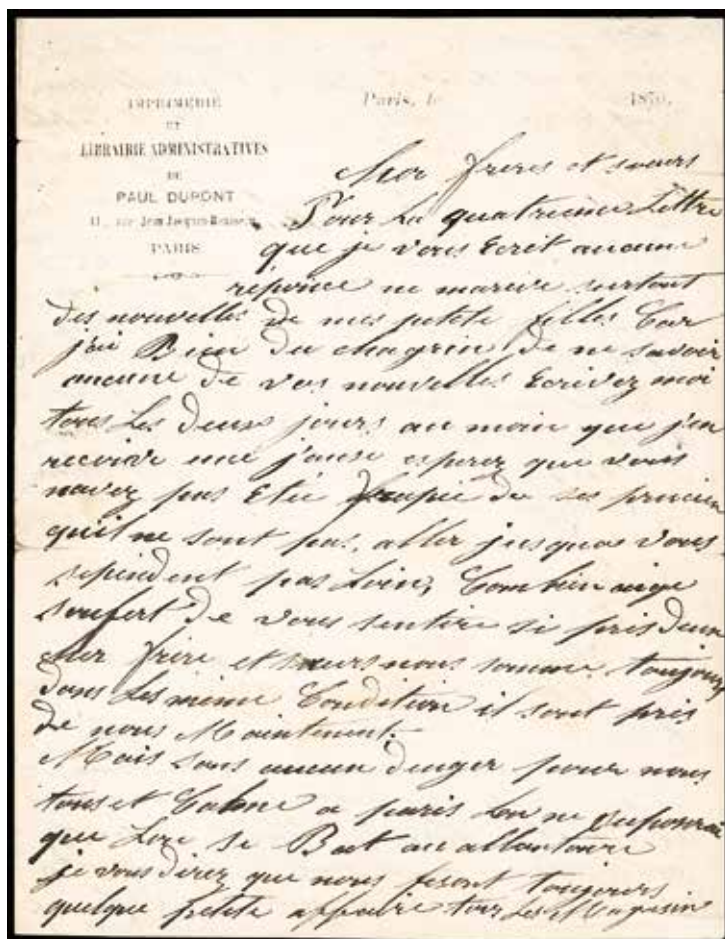 IMPRIMERIE
ET
LIBRAIRIE ADMINISTRATIVES
DE
PAUL DUPONT
41, rue Jean-Jacques-Rousseau
PARIS
Paris, le 1870.
Cher freres et sœurs
Pour La quatrieme Lettre
que je vous Ecrit aucune
reponce ne marive surtout
des nouvelles de mes petite filles Car
j'ai Bien du chagrin de ne savoir
aucune de vos nouvelles Ecrivez moi
tous Les deux jours au moin que j'en
recoive une j'ause esperez que vous
navez pas Etée frapié de ses prucien
quil ne sont pas aller jusqua vous
sependent pas Loin, Combien aige
soufert de vous sentire si pris deux
cher frère et sœurs nous somme toujours
dans Les mème Condition il sont pris
de nous Maintenent.
Mais sans aucun denger pour nous
tous et Calme a paris Lon ne suposerai
que Lon se Bat au allantoure
je vous direz que nous fesont toujours
quelque petite affaire tous Les Magasin